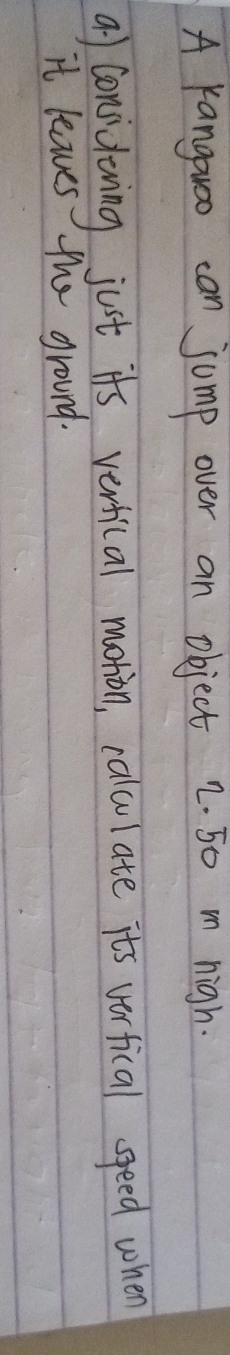 A kangaroo can jump over an object 2.50 m high.
a.) Considering just its vertical motion, calculate its vertical speed when
it leaves the ground.